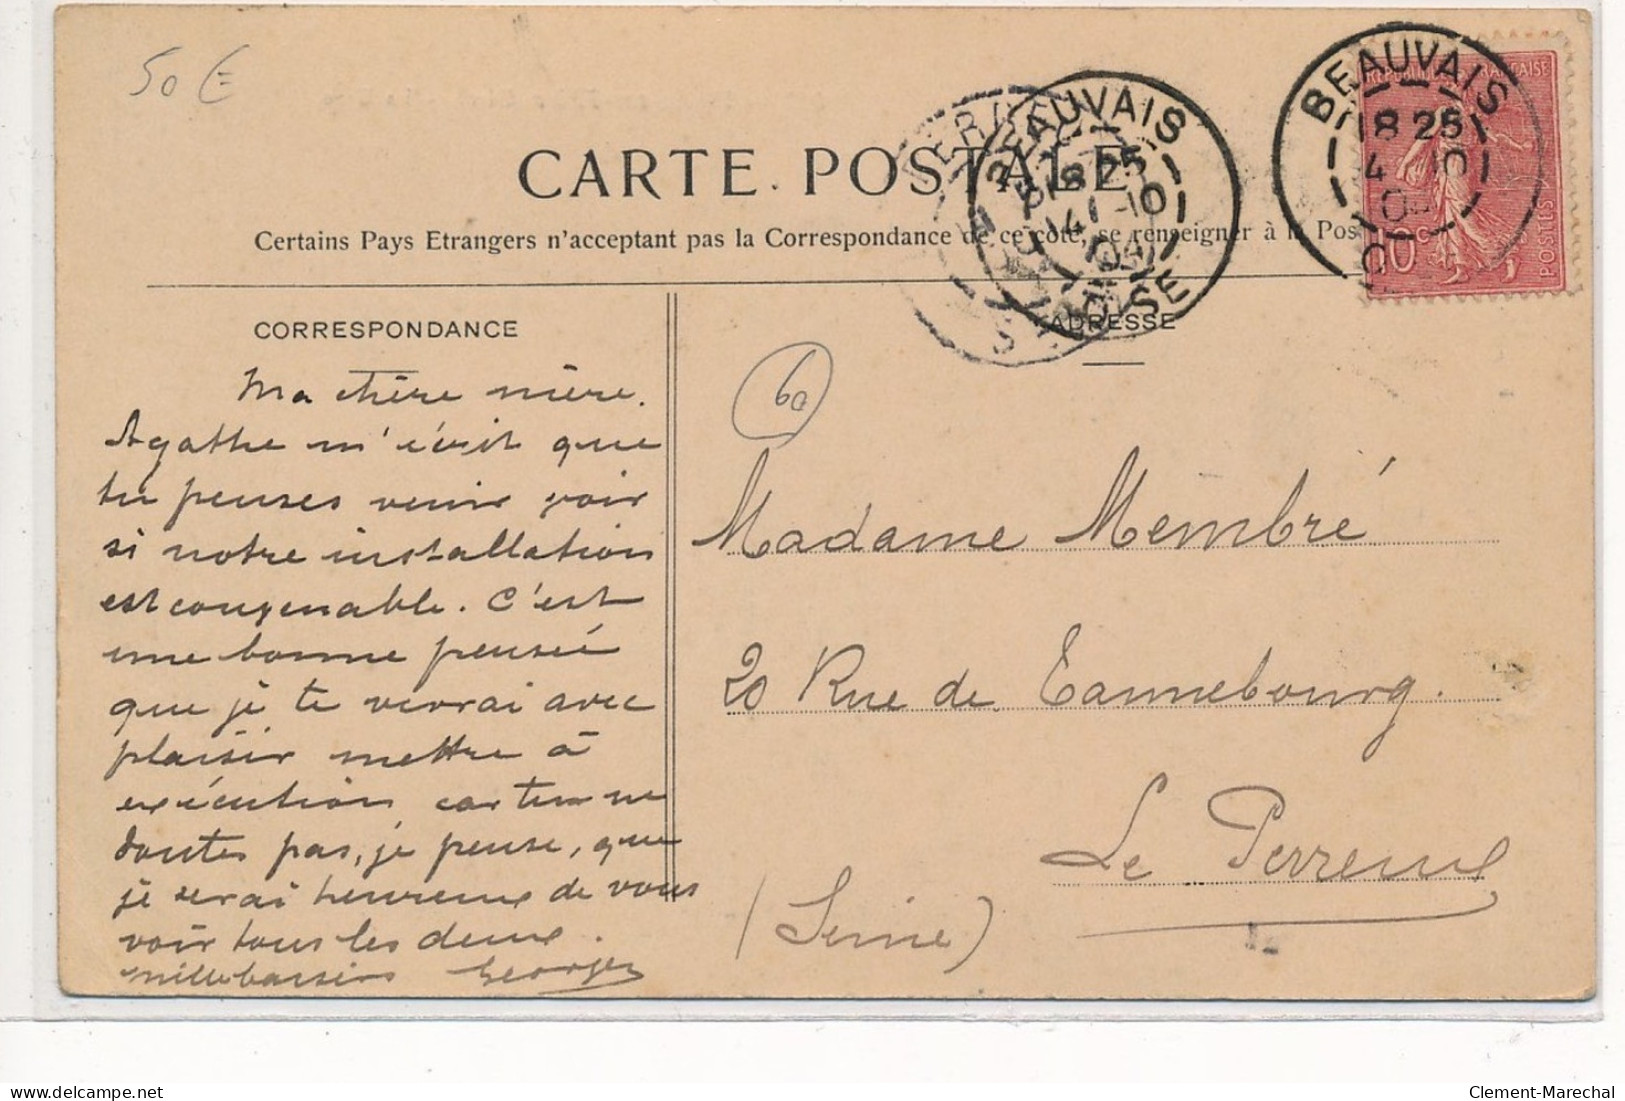 50 €
CARTE POSTALE
Certains Pays Etrangers n'acceptant pas la Correspondance de ce côté, se renseigner à la Pos
BEAUVAIS
18 25
4 10
OISE
BEAUVAIS
18 25
4 10
REPUBLIQUE FRANÇAISE
10 c
POSTES
CORRESPONDANCE
Ma chère mère.
Agathe m'écrit que
tu penses venir voir
si notre installation
est convenable. C'est
une bonne pensée
que je te verrai avec
plaisir mettre à
exécution car tu ne
doutes pas, je pense, que
je serai heureux de vous
voir tous les deux.
Mille baisers Georges
ADRESSE
60
Madame Membré
20 Rue de Cannebourg.
Le Perreux
(Seine)
Clement-Marechal